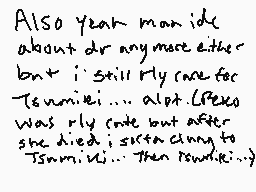 Also yeah man idc
about dr anymore either
but i still rly care for
Tsumiki.... alot. (Peko
was rly cute but after
she died i sorta clung to
Tsumiki... Then Tsumiki...)